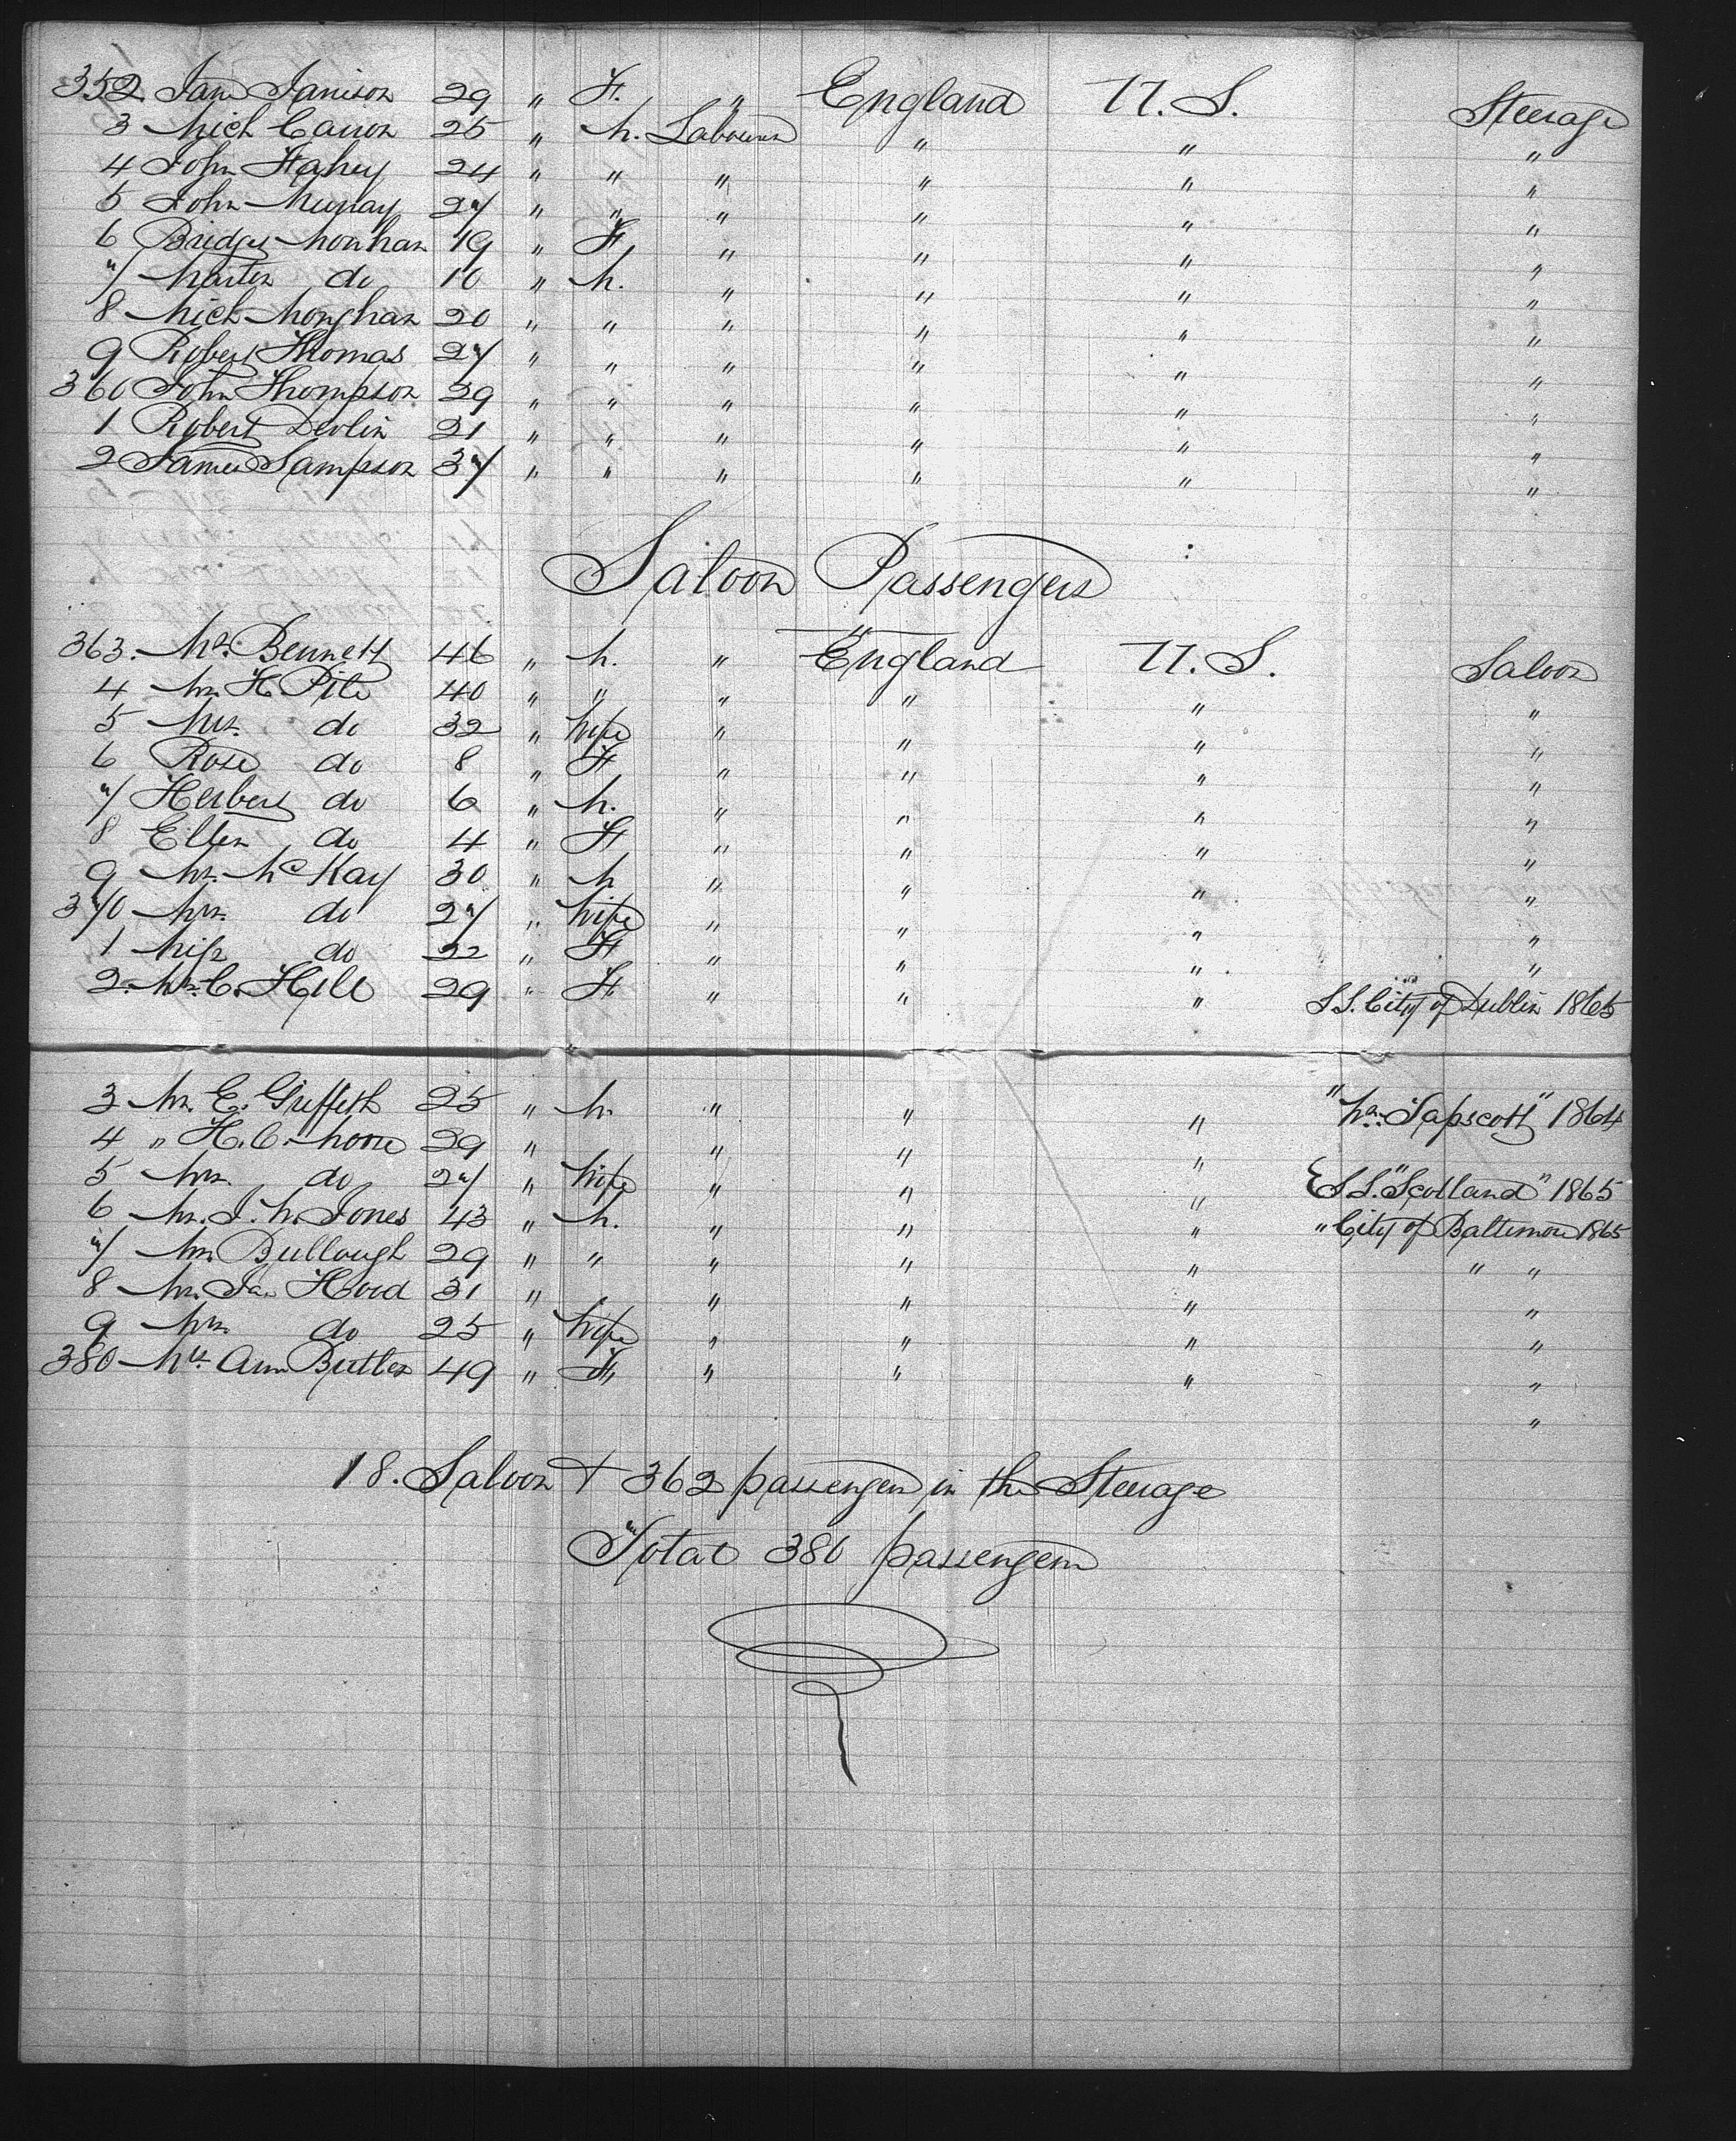 352 Jane Jamison 29 " F. " England U.S. Steerage
3 Mich Carron 25 " M. Labourer " " "
4 John Fahey 24 " " " " " "
5 John Murray 27 " " " " " "
6 Bridget Monhan 19 " F " " " "
7 Martin do 10 " M. " " " "
8 Mich Monghan 20 " " " " " "
9 Robert Thomas 27 " " " " " "
360 John Thompson 29 " " " " " "
1 Robert Devlin 21 " " " " " "
2 James Sampson 37 " " " " " "
Saloon Passengers
363. Mr. Bennett 46 " M. " England U.S. Saloon
4 Mr. H Pile 40 " " " " " "
5 Mrs. do 32 " Wife " " " "
6 Rose do 8 " F " " " "
7 Herbert do 6 " M. " " " "
8 Ellen do 4 " F " " " "
9 Mr. McKay 30 " M " " " "
370 Mrs. do 27 " Wife " " " "
1 Miss do 22 " F " " " "
2. Mrs. C. Hill 29 " F " " " S.S. City of Dublin 1865
3 Mr. E. Griffith 25 " M. " " " "Wm. Tapscott" 1864
4 " H. C. Moore 29 " " " " "
5 Mrs. do 27 " Wife " " " S.S. "Scotland" 1865
6 Mr. J. M. Jones 43 " M. " " " " City of Baltimore 1865
7 Mr. Bullough 29 " " " " " " "
8 Mr. Jas Hood 31 " " " " " "
9 Mrs. do 25 " Wife " " " "
380 Mrs. Ann Butler 49 " F " " " "
"
18. Saloon + 362 passengers in the Steerage
Total 380 passengers